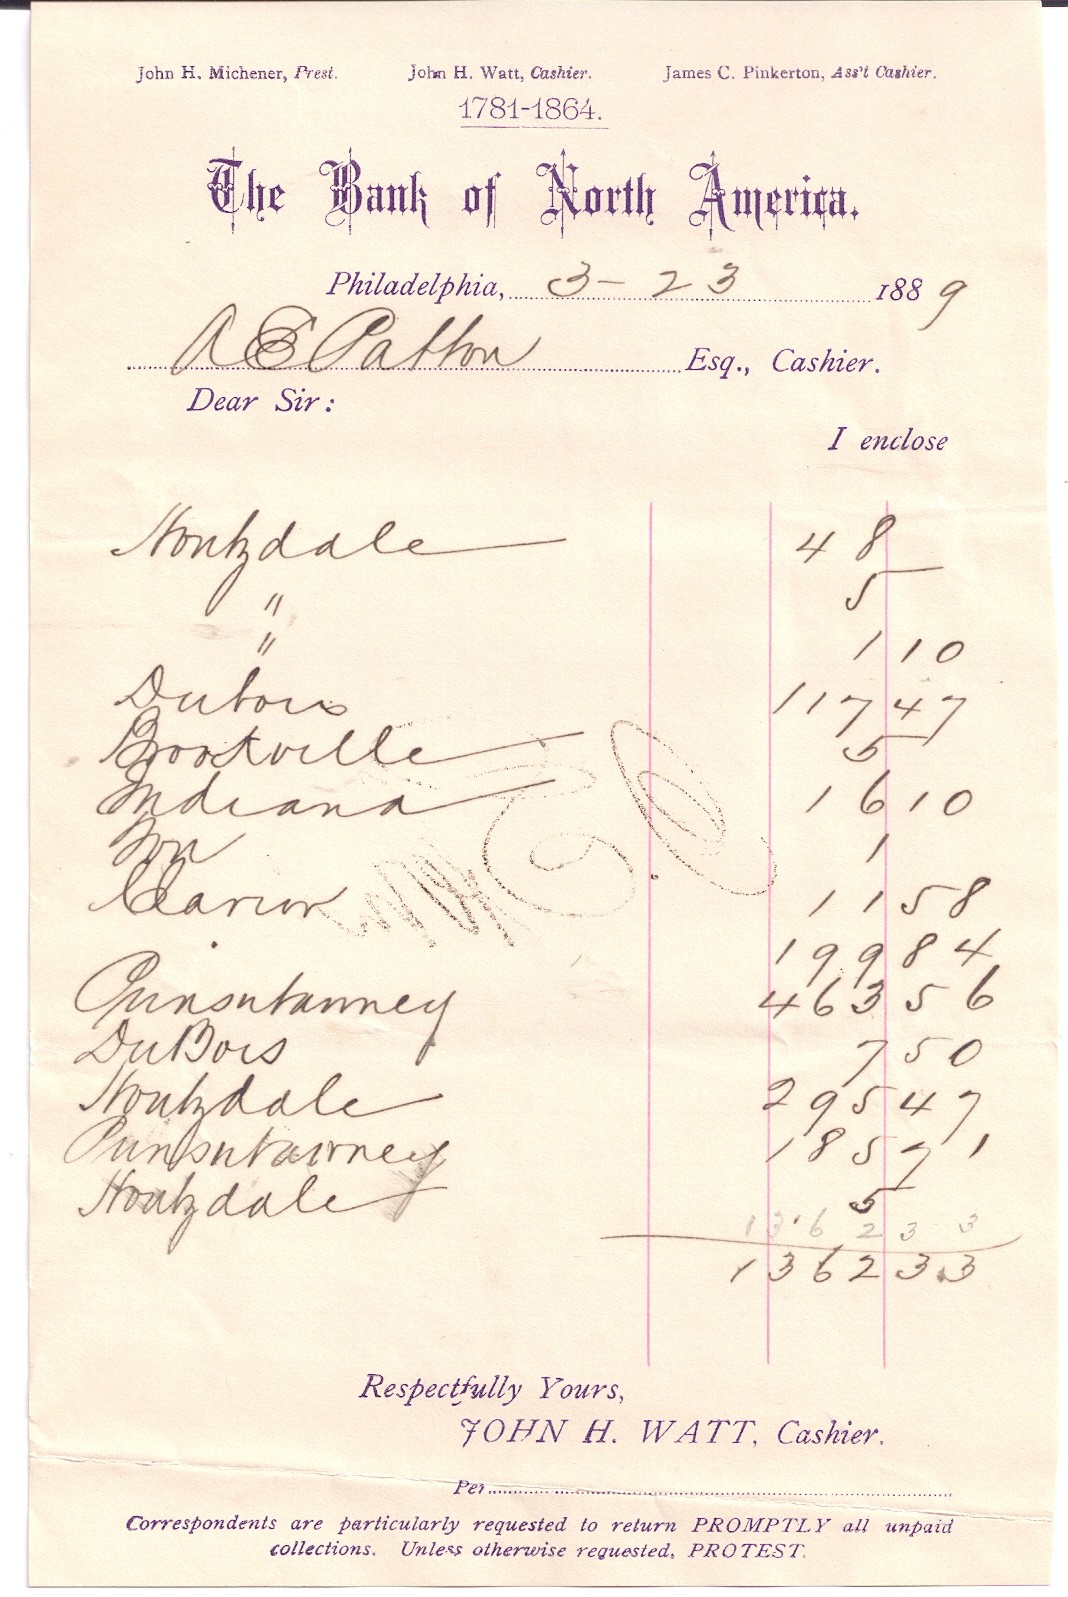 John H. Michener, Prest. John H. Watt, Cashier. James C. Pinkerton, Ass't Cashier.
1781-1864.
The Bank of North America.
Philadelphia, 3-23 1889
A E Patton Esq., Cashier.
Dear Sir:
I enclose
Houtzdale 48 —
" 5
" 1 10
Dubois 117 47
Brookville 5 —
Indiana 16 10
1
Clarion 11 58
199 84
Punxsutawney 463 56
DuBois 7 50
Houtzdale 295 47
Punxsutawney 185 71
Houtzdale 5 —
1362 33
1362 33
Respectfully Yours,
JOHN H. WATT, Cashier.
Per
Correspondents are particularly requested to return PROMPTLY all unpaid
collections. Unless otherwise requested, PROTEST.